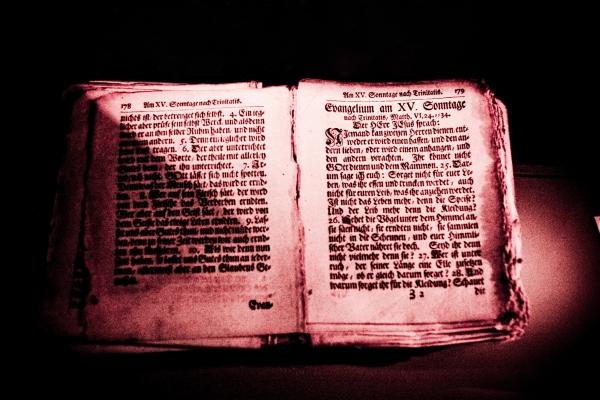 178 Am XV. Sonntage nach Trinitatis.
nichts ist, der betreuget sich selbst. 4. Ein ieg-
licher aber prüfe sein selbst Werck, und alsdenn
wird er an ihm selber Ruhm haben, und nicht
an einem andern. 5. Denn ein ieglicher wird
seine Last tragen. 6. Der aber unterrichtet
wird mit dem Worte, der theile mit allerley
Gutes dem, der ihn unterrichtet. 7.
GOtt lässet sich nicht spotten.
der Mensch säet, das wird er ernd-
ten.
das Verderben erndten.
Wer aber auf den Geist säet, der wird von
dem Geist das ewige Leben erndten. 9.
nicht müde wer-
den
10. Als wir denn nun
Gutes thun an ieder-
mann, allermeist aber an den Glaubens Ge-
Evan-
Am XV. Sonntage nach Trinitatis. 179
Evangelium am XV. Sonntage
nach Trinitatis, Matth. VI, 24.-34.
Der HErr JEsus sprach:
Niemand kan zweyen Herren dienen, ent-
weder er wird einen hassen, und den an-
dern lieben, oder wird einem anhangen, und
den andern verachten. Ihr könnet nicht
GOtt dienen und dem Mammon. 25. Dar-
um sage ich euch: Sorget nicht für euer Le-
ben, was ihr essen und trincken werdet, auch
nicht für euren Leib, was ihr anziehen werdet.
Ist nicht das Leben mehr, denn die Speise?
Und der Leib mehr denn die Kleidung?
26. Sehet die Vögel unter dem Himmel an,
sie säen nicht, sie erndten nicht, sie sammlen
nicht in die Scheunen, und euer Himmli-
scher Vater nähret sie doch. Seyd ihr denn
nicht vielmehr denn sie? 27. Wer ist unter
euch, der seiner Länge eine Elle zusetzen
möge, ob er gleich darum sorget? 28. Und
warum sorget ihr für die Kleidung? Schauet
3 2 die